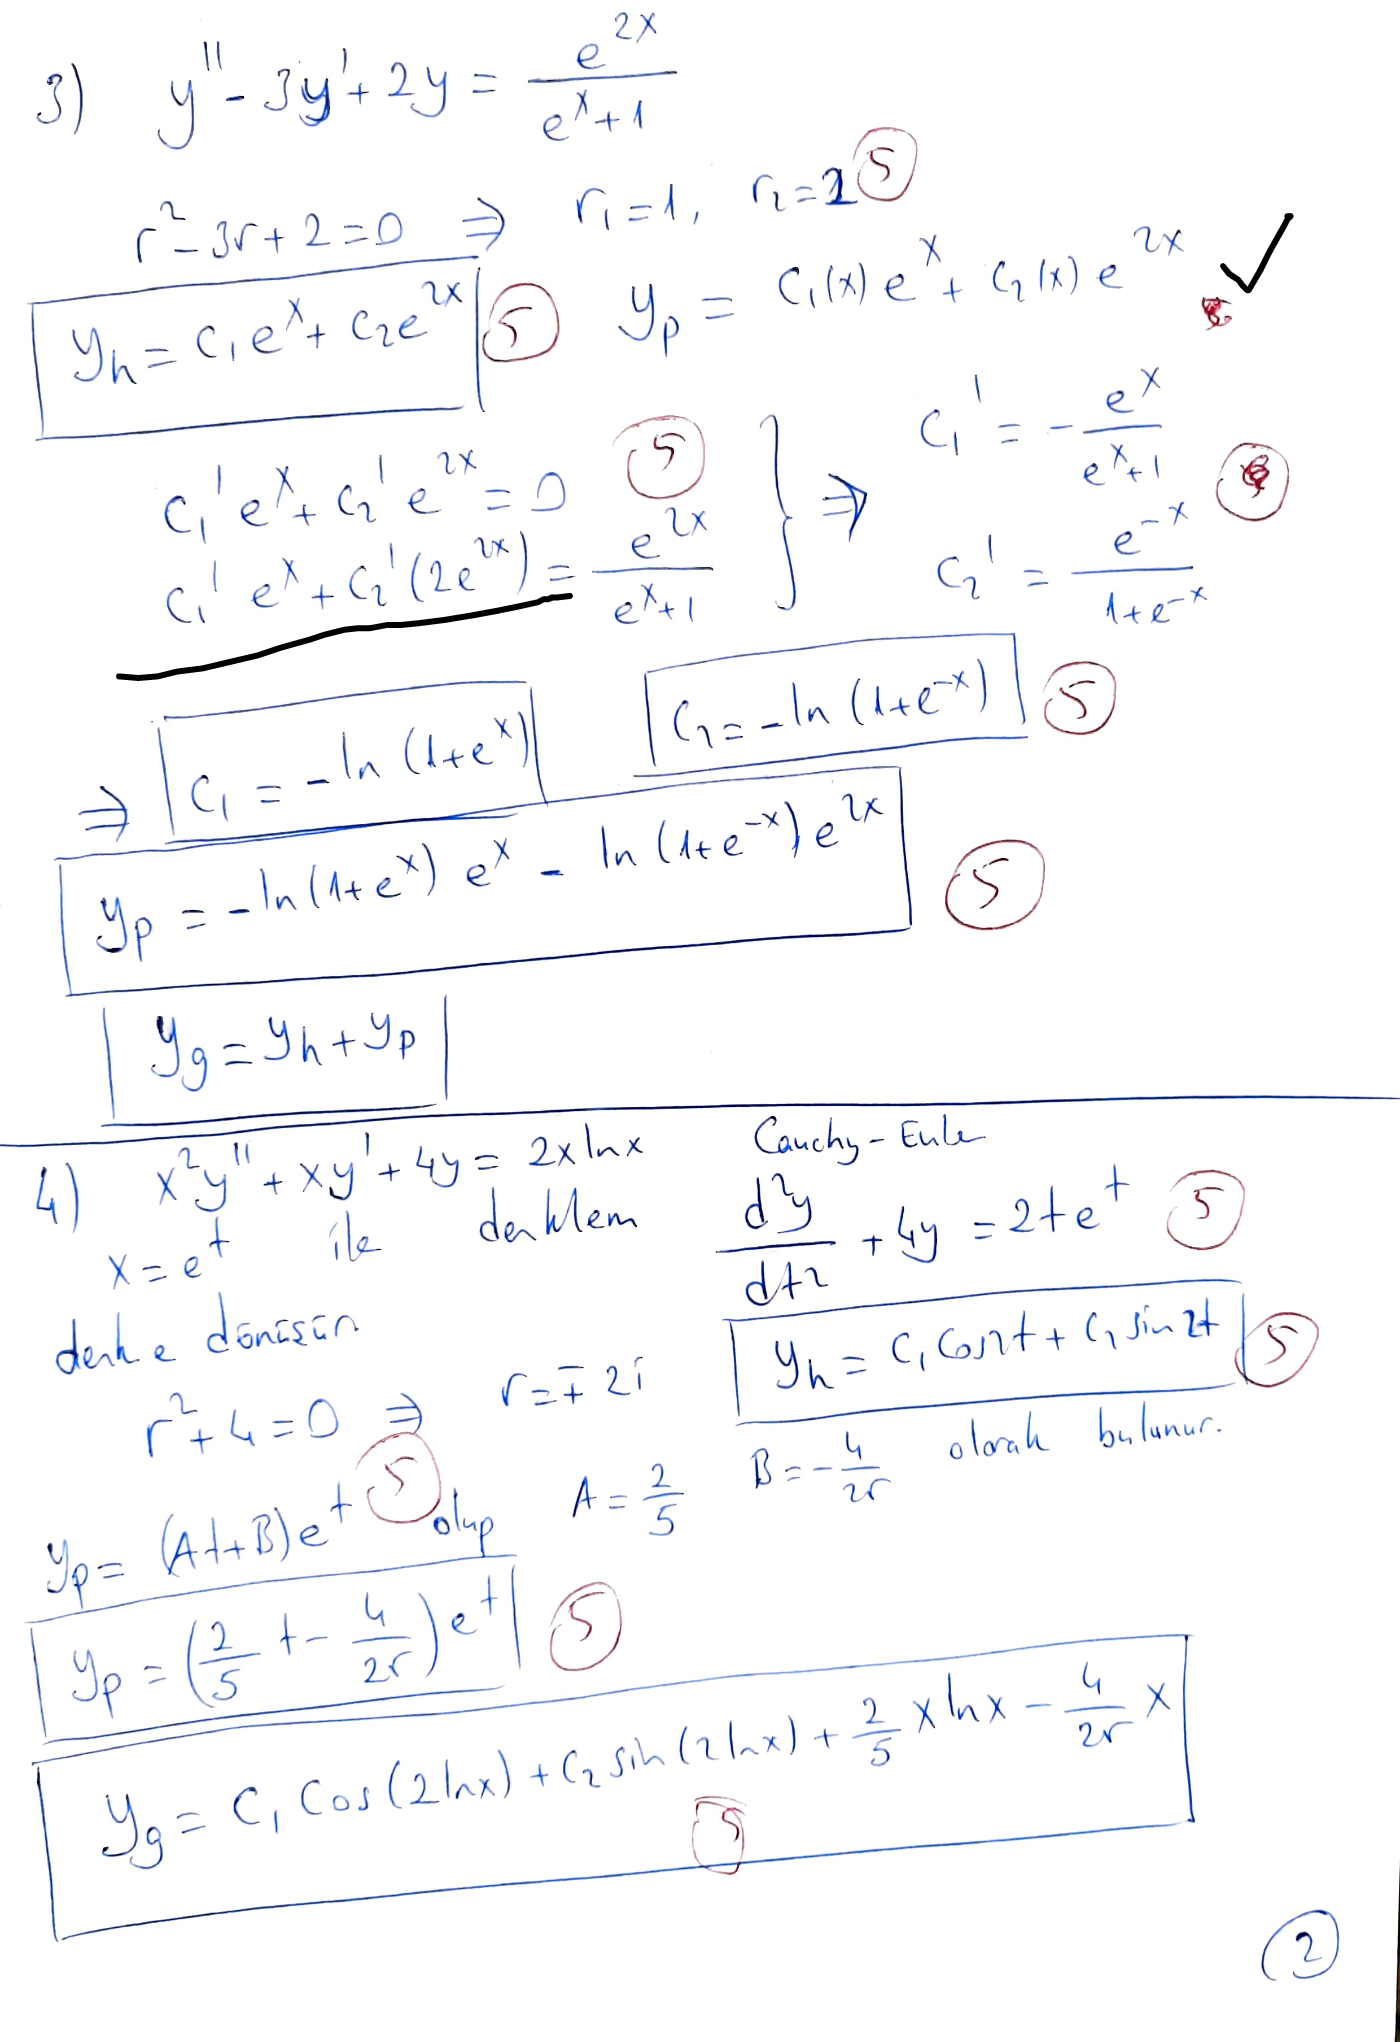 3) y'' - 3y' + 2y = e^{2x} / (e^x + 1)
r² - 3r + 2 = 0 ⇒ r₁ = 1, r₂ = 2 (5)
y_h = c₁e^x + c₂e^{2x} (5) y_p = c₁(x)e^x + c₂(x)e^{2x} ✓
c₁'e^x + c₂'e^{2x} = 0 (5)
c₁'e^x + c₂'(2e^{2x}) = e^{2x} / (e^x + 1) } ⇒ c₁' = - e^x / (e^x + 1)
c₂' = e^{-x} / (1 + e^{-x})
⇒ c₁ = -ln(1+e^x) c₂ = -ln(1+e^{-x}) (5)
y_p = -ln(1+e^x) e^x - ln(1+e^{-x}) e^{2x} (5)
y_g = y_h + y_p
4) x²y'' + xy' + 4y = 2x ln x Cauchy-Eule
x = e^t ile denklem d²y/dt² + 4y = 2te^t (5)
denk e dönüşür
r² + 4 = 0 ⇒ r = ∓2i y_h = c₁ Cos2t + c₂ sin2t (5)
y_p = (At+B)e^t (5) olup A = 2/5 B = -4/25 olarak bulunur.
y_p = (2/5 t - 4/25) e^t (5)
y_g = c₁ Cos(2lnx) + c₂ sin(2lnx) + 2/5 x lnx - 4/25 x
(5)
(2)